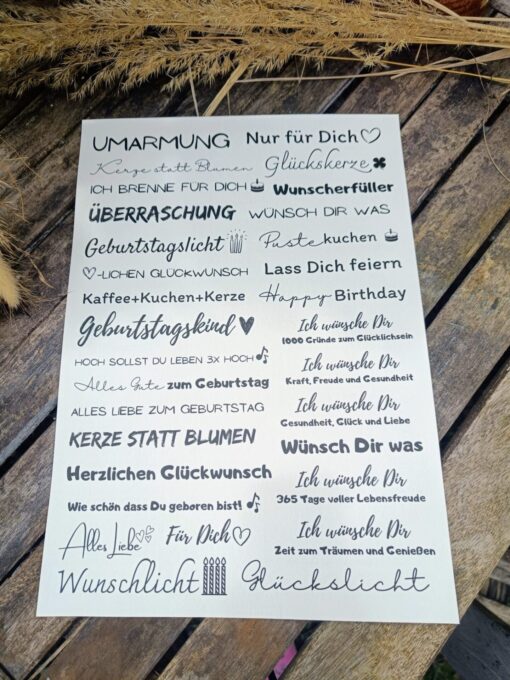 UMARMUNG Nur für Dich
Kerze statt Blumen Glückskerze
ICH BRENNE FÜR DICH Wunscherfüller
ÜBERRASCHUNG WÜNSCH DIR WAS
Geburtstagslicht Pustekuchen
-LICHEN GLÜCKWUNSCH Lass Dich feiern
Kaffee+Kuchen+Kerze Happy Birthday
Geburtstagskind Ich wünsche Dir
1000 Gründe zum Glücklichsein
HOCH SOLLST DU LEBEN 3X HOCH Ich wünsche Dir
Kraft, Freude und Gesundheit
Alles Gute zum Geburtstag
ALLES LIEBE ZUM GEBURTSTAG Ich wünsche Dir
Gesundheit, Glück und Liebe
KERZE STATT BLUMEN Wünsch Dir was
Herzlichen Glückwunsch Ich wünsche Dir
365 Tage voller Lebensfreude
Wie schön dass Du geboren bist!
Alles Liebe Für Dich Ich wünsche Dir
Zeit zum Träumen und Genießen
Wunschlicht Glückslicht